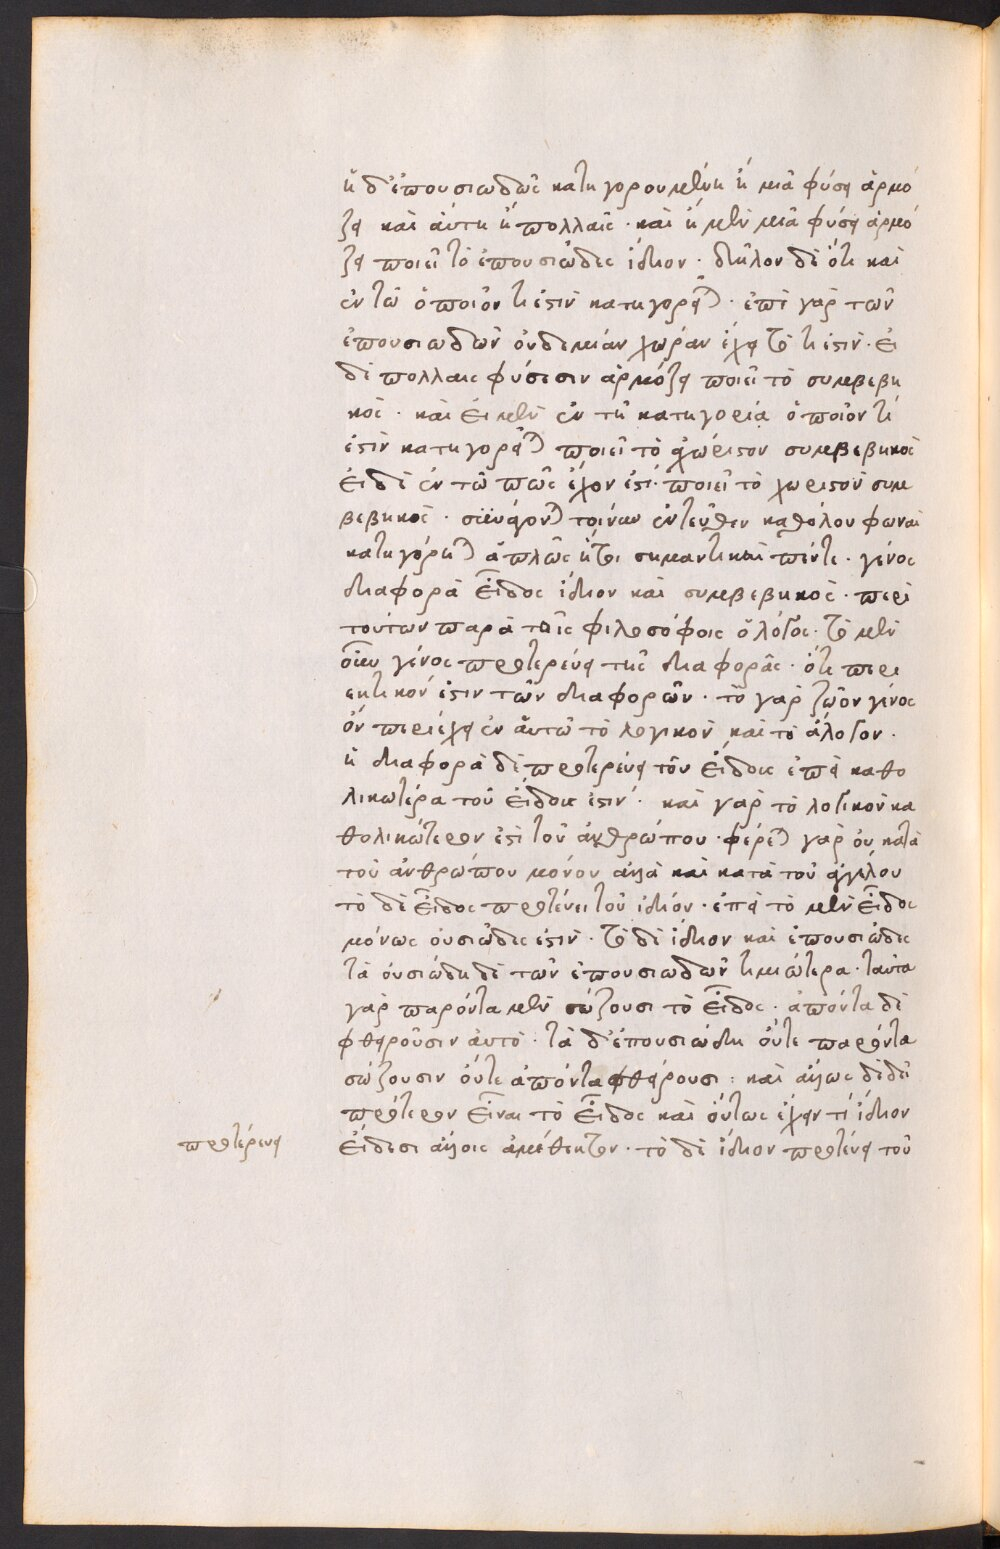 ἡ δ' ἐπουσιωδῶς κατηγορουμένη ἢ μιᾷ φύσει ἁρμό
ζει καὶ αὐτὴ ἢ πολλαῖς · καὶ ἡ μὲν μιᾷ φύσει ἁρμό
ζει ποιεῖ τὸ ἐπουσιῶδες ἴδιον · δῆλον δὲ ὅτι καὶ
ἐν τῷ ὁποῖόν τι ἐστὶν κατηγορεῖται · ἐπὶ γὰρ τῶν
ἐπουσιωδῶν οὐδεμίαν χώραν ἔχει τὸ τί ἐστιν · εἰ
δὲ πολλαῖς φύσεσιν ἁρμόζει ποιεῖ τὸ συμβεβη
κός · καὶ εἰ μὲν ἐν τῇ κατηγορίᾳ ὁποῖόν τί
ἐστὶν κατηγορεῖται ποιεῖ τὸ ἀχώριστον συμβεβηκὸς
εἰ δὲ ἐν τῷ πῶς ἔχον ἐστί · ποιεῖ τὸ χωριστὸν συμ
βεβηκός · συνάγονται τοίνυν ἐντεῦθεν καθόλου φωναὶ
κατηγόρων ἁπλῶς ἤτοι σημαντικαὶ πέντε · γένος
διαφορὰ εἶδος ἴδιον καὶ συμβεβηκός · περὶ
τούτων παρὰ τοῖς φιλοσόφοις ὁ λόγος · τὸ μὲν
οὖν γένος προτερεύει τῆς διαφορᾶς · ὅτι περι
εκτικόν ἐστιν τῶν διαφορῶν · τὸ γὰρ ζῶον γένος
ὂν περιέχει ἐν αὐτῷ τὸ λογικὸν καὶ τὸ ἄλογον ·
ἡ διαφορὰ δὲ προτερεύει τοῦ εἴδους ἐπεὶ καθο
λικωτέρα τοῦ εἴδους ἐστίν · καὶ γὰρ τὸ λογικὸν κα
θολικώτερον ἐστὶ τοῦ ἀνθρώπου · φέρεται γὰρ οὐ κατὰ
τοῦ ἀνθρώπου μόνον ἀλλὰ καὶ κατὰ τοῦ ἀγγέλου
τὸ δὲ εἶδος πρωτεύει τοῦ ἰδίου · ἐπεὶ τὸ μὲν εἶδος
μόνως οὐσιῶδες ἐστίν · τὸ δὲ ἴδιον καὶ ἐπουσιῶδες
τὰ οὐσιώδη δὲ τῶν ἐπουσιωδῶν τιμιώτερα · ταῦτα
γὰρ παρόντα μὲν σώζουσι τὸ εἶδος · ἀπόντα δὲ
φθείρουσιν αὐτό · τὰ δ' ἐπουσιώδη οὔτε παρόντα
σώζουσιν οὔτε ἀπόντα φθείρουσι · καὶ ἄλλως δὲ δεῖ
πρότερον εἶναι τὸ εἶδος καὶ οὕτως ἔχειν τί ἴδιον
προτερεύει
εἴδεσι ἄλλοις ἀμέθεκτον · τὸ δὲ ἴδιον πρωτεύει τοῦ